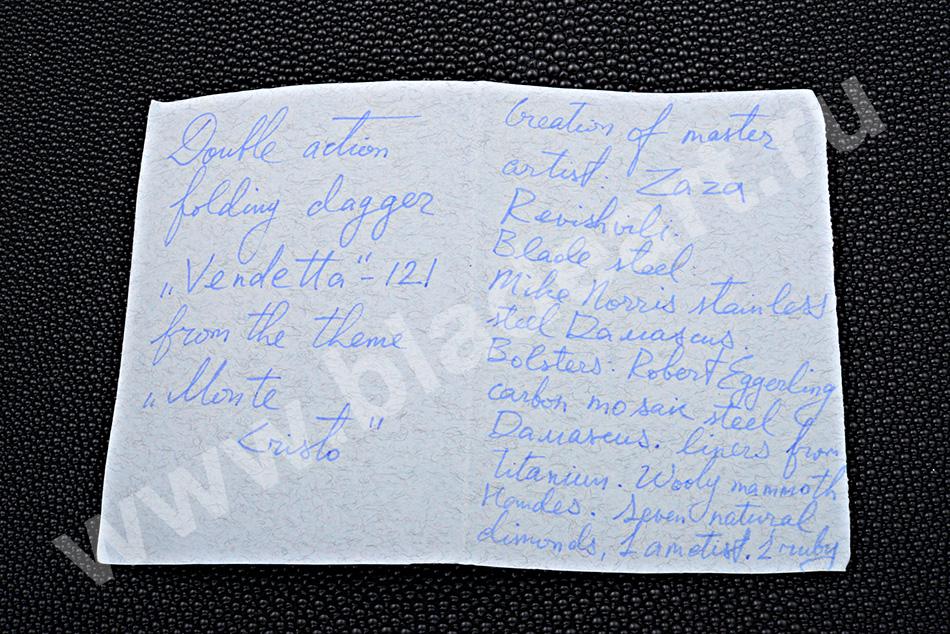 Double action
folding dagger
„Vendetta"-121
from the theme
„Monte
Cristo"
Creation of master
artist: Zaza
Revishvili.
Blade steel
Mike Norris stainless
steel Damascus.
Bolsters: Robert Eggerling
carbon mosaic steel
Damascus. liners from
titanium. Wooly mammoth
Handes. Seven natural
dimonds, 1 ametist. 2 ruby